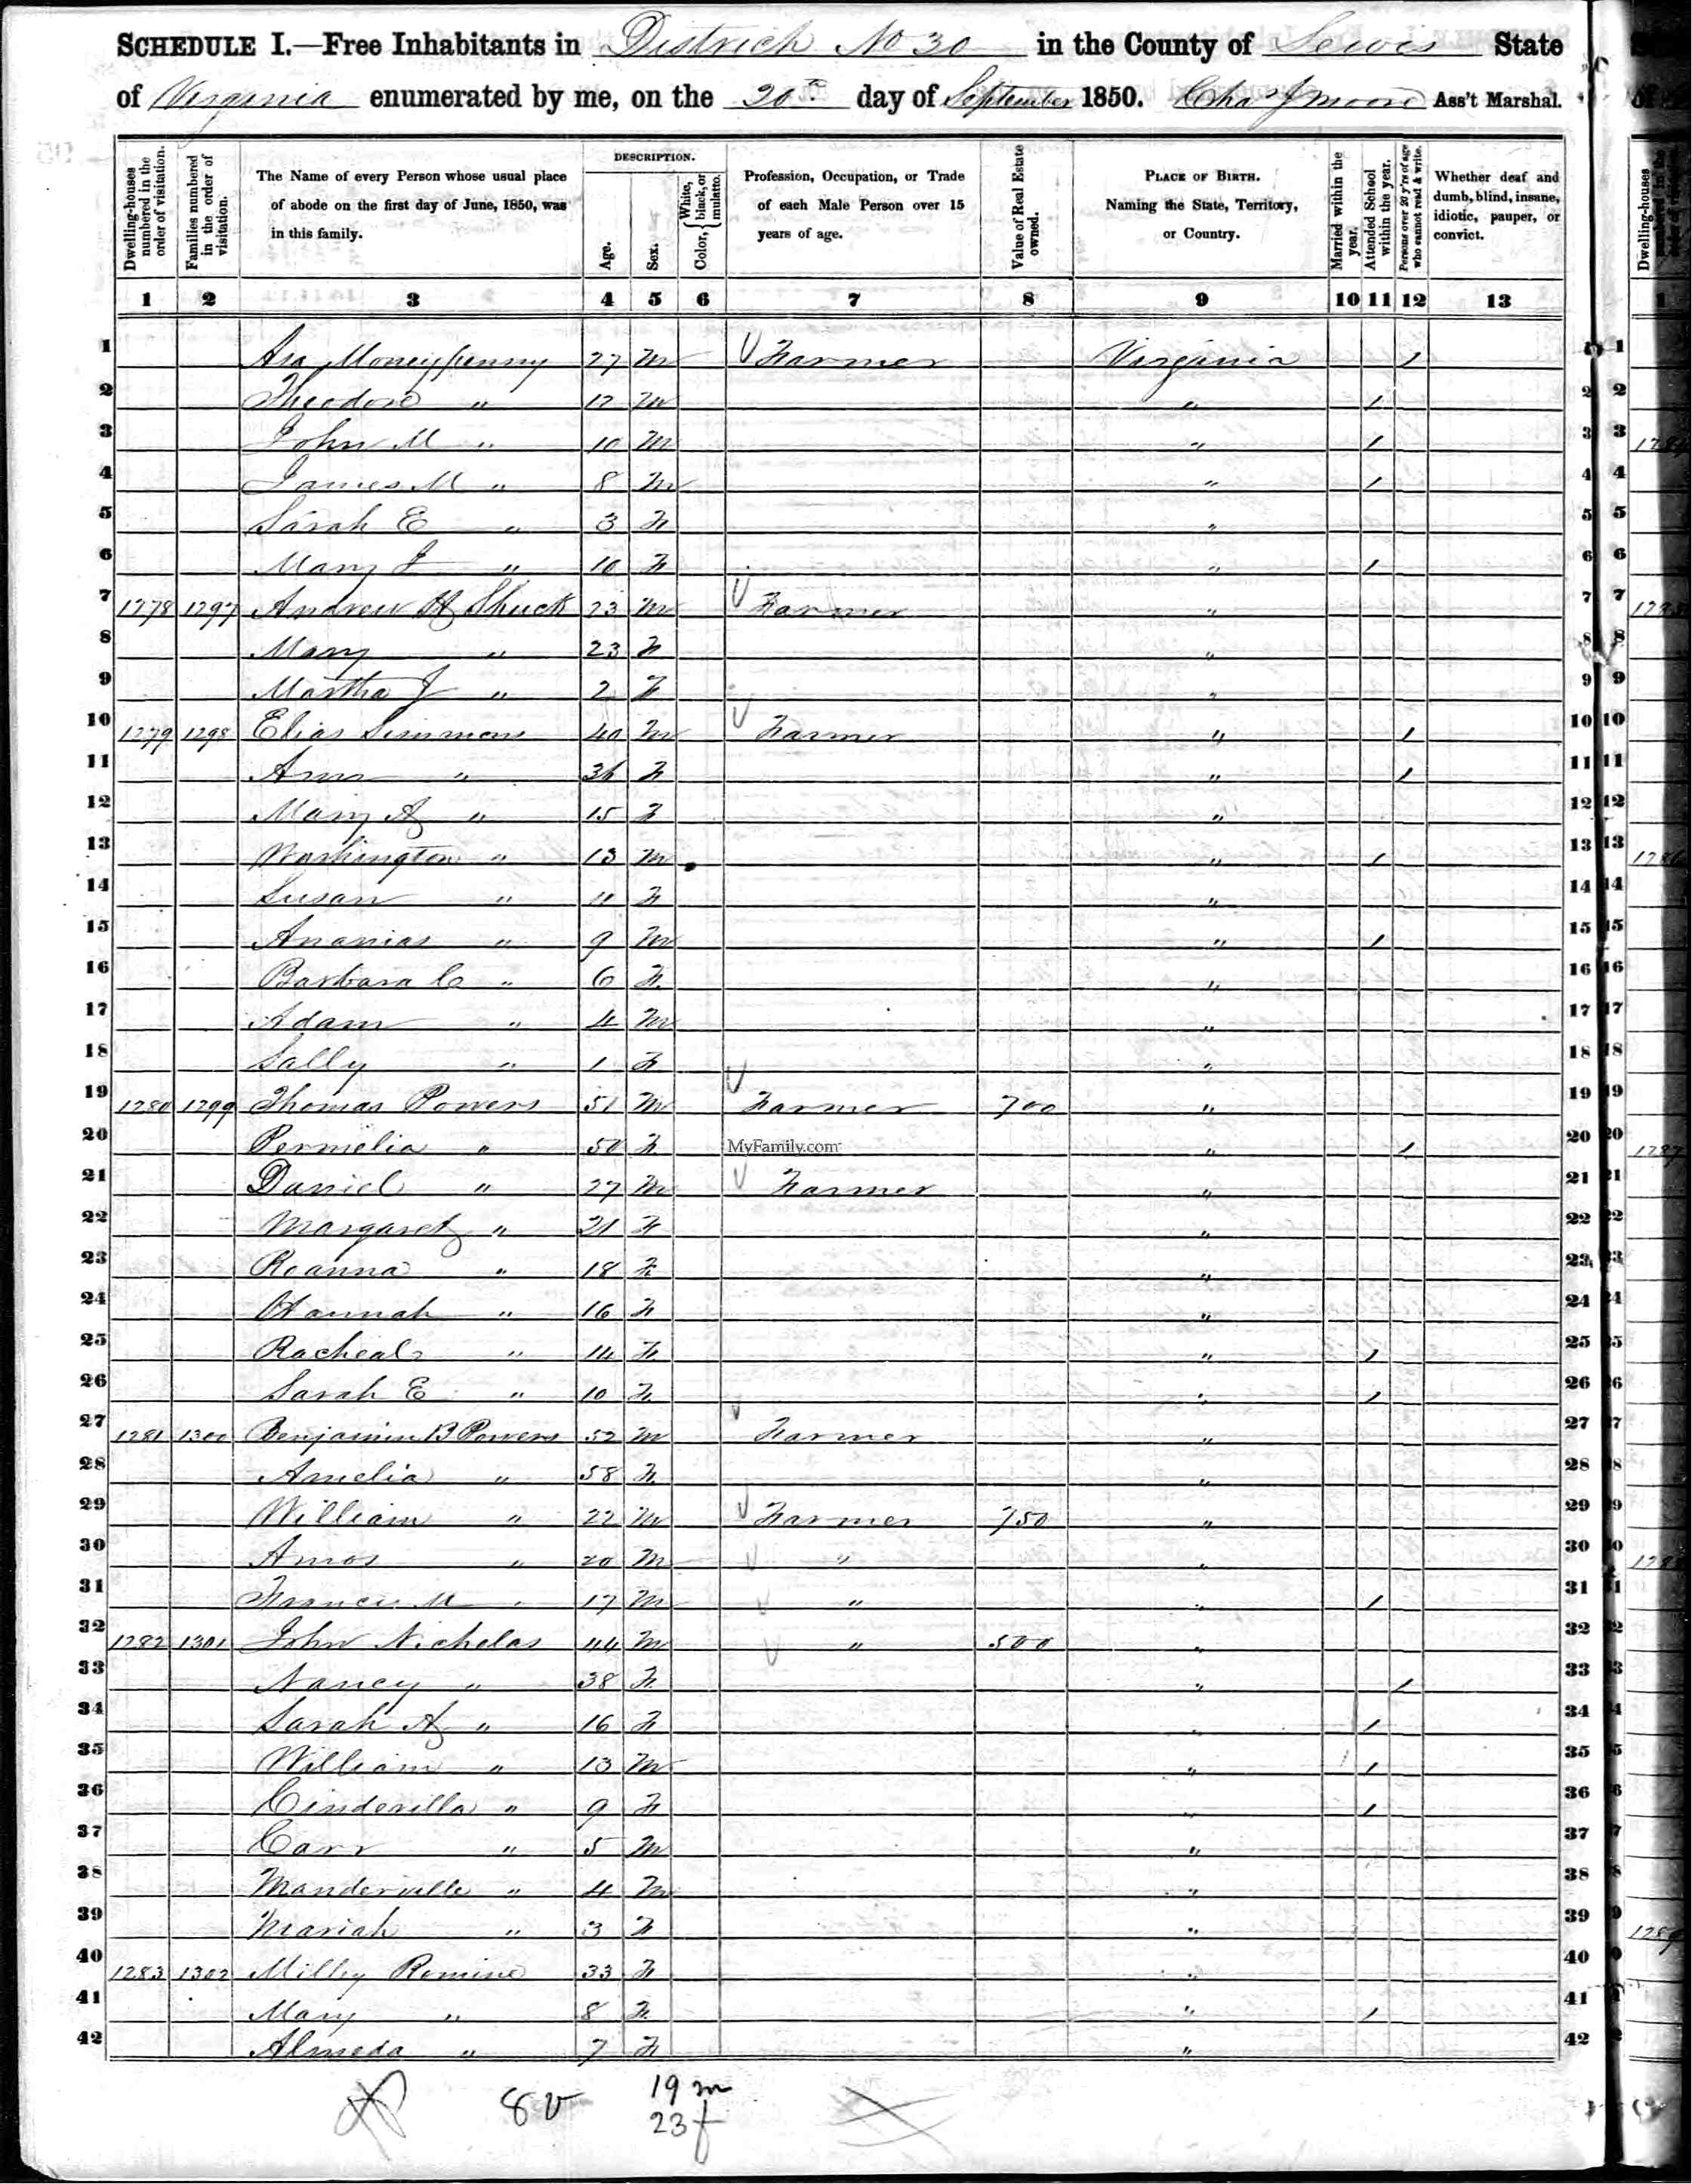 SCHEDULE I.—Free Inhabitants in District No 30 in the County of Lewis State
of Virginia enumerated by me, on the 20th day of September 1850. Chas J Moore Ass't Marshal.
Dwelling-houses numbered in the order of visitation.
Families numbered in the order of visitation.
The Name of every Person whose usual place of abode on the first day of June, 1850, was in this family.
DESCRIPTION.
Age.
Sex.
Color, { White, black, or mulatto.
Profession, Occupation, or Trade of each Male Person over 15 years of age.
Value of Real Estate owned.
PLACE OF BIRTH. Naming the State, Territory, or Country.
Married within the year.
Attended School within the year.
Persons over 20 y'rs of age who cannot read & write.
Whether deaf and dumb, blind, insane, idiotic, pauper, or convict.
1 2 3 4 5 6 7 8 9 10 11 12 13
1 Asa Moneypenny 27 M Farmer Virginia / 1
2 Theodore " 12 M " / 2
3 John M " 10 M " / 3
4 James M " 8 M " / 4
5 Sarah E " 3 F " 5
6 Mary J " 10 F " / 6
7 1278 1297 Andrew H Shuck 23 M Farmer " 7
8 Mary " 23 F " 8
9 Martha J " 2 F " 9
10 1279 1298 Elias Simmons 40 M Farmer " / 10
11 Ann " 36 F " / 11
12 Mary A " 15 F " 12
13 Washington " 13 M " / 13
14 Susan " 11 F " 14
15 Ananias " 9 M " / 15
16 Barbara C " 6 F " 16
17 Adam " 4 M " 17
18 Sally " 1 F " 18
19 1280 1299 Thomas Powers 51 M Farmer 700 " 19
20 Permelia " 50 F MyFamily.com " / 20
21 Daniel " 27 M Farmer " 21
22 Margaret " 21 F " 22
23 Roanna " 18 F " 23
24 Hannah " 16 F " 24
25 Racheal " 14 F " / 25
26 Sarah E " 10 F " / 26
27 1281 1300 Benjamin B Powers 52 M Farmer " 27
28 Amelia " 58 F " 28
29 William " 22 M Farmer 750 " 29
30 Amos " 20 M " " 30
31 Francis M " 17 M " " / 31
32 1282 1301 John Nicholas 44 M " 500 " 32
33 Nancy " 38 F " / 33
34 Sarah A " 16 F " / 34
35 William " 13 M " / 35
36 Cinderilla " 9 F " / 36
37 Carr " 5 M " 37
38 Manderville " 4 M " 38
39 Mariah " 3 F " 39
40 1283 1302 Milly Romine 33 F " 40
41 Mary " 8 F " / 41
42 Almeda " 7 F " 42
8 v 19 m
23 f